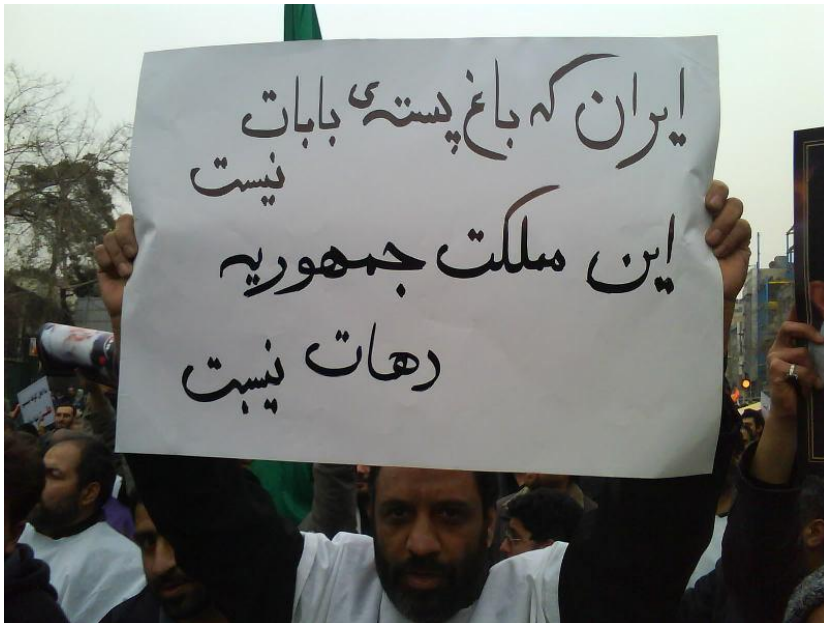 ایران که باغ پسته‌ی بابات
نیست
این مملکت جمهوریه
دهات نیست